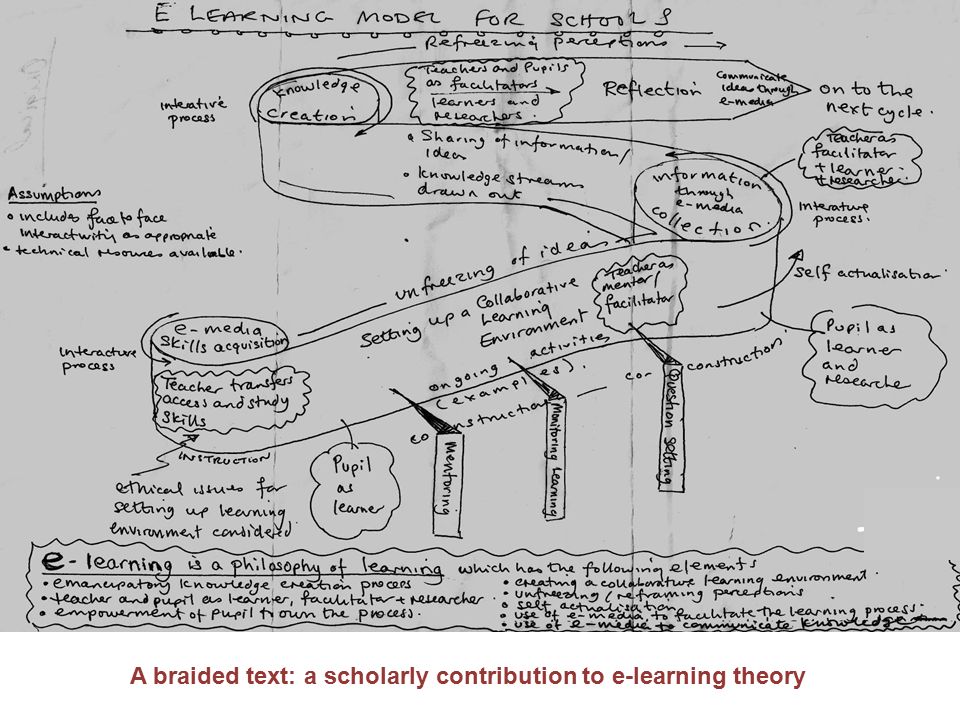 E LEARNING MODEL FOR SCHOOLS
Refreezing perceptions
Knowledge
creation
Interative
process
Teachers and Pupils
as facilitators
learners and
researchers.
Reflection
Communicate
ideas through
e-media
on to the
next cycle.
• Sharing of information/
ideas
• knowledge streams
drawn out
information
through
e-media
collection.
Teacher as
facilitator
+ learner
+ researcher.
Interature
process.
Assumptions
• includes face to face
interactivity as appropriate
• technical resources available.
unfreezing of ideas
Setting up a Collaborative
Learning
Environment
Teacher as
mentor/
facilitator
self actualisation.
e-media
skills acquisition
Interacture
process
Teacher transfers
access and study
skills
INSTRUCTION
ongoing activities
(examples).
co construction
co construction
Pupil as
learner
and
researcher
Mentoring
Monitoring Learning
Question setting
Pupil
as
learner
ethical issues for
setting up learning
environment considered
e-learning is a philosophy of learning which has the following elements
• emancipatory knowledge creation process
• teacher and pupil as learner, facilitator + researcher.
• empowerment of pupil to own the process.
• creating a collaborative learning environment.
• unfreezing/reframing perceptions
• self actualisation
• use of e-media to facilitate the learning process.
• use of e-media to communicate knowledge
A braided text: a scholarly contribution to e-learning theory